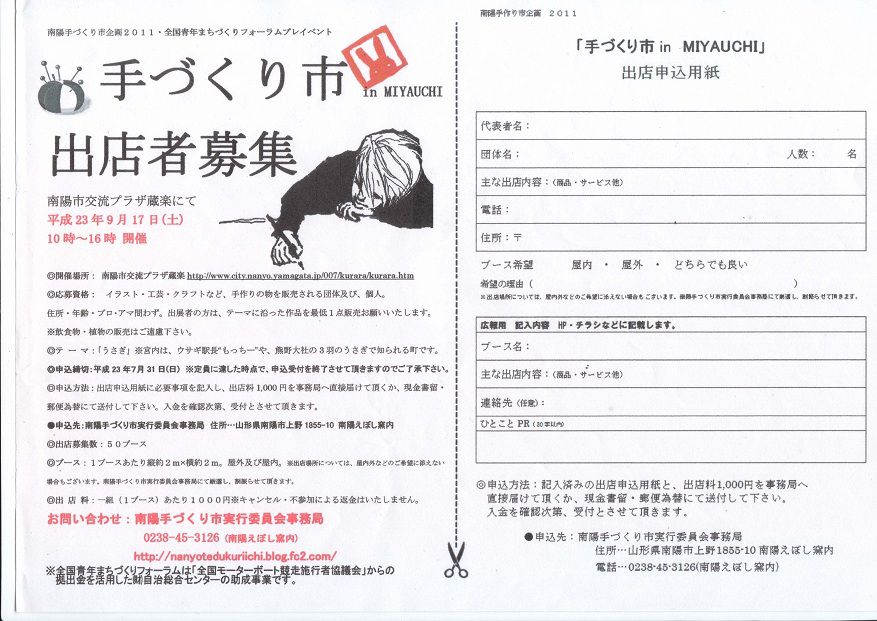 南陽手づくり市企画２０１１・全国青年まちづくりフォーラムプレイベント
手づくり市 in MIYAUCHI
出店者募集
南陽市交流プラザ蔵楽にて
平成23年9月17日(土)
10時～16時 開催
◎開催場所： 南陽市交流プラザ蔵楽 http://www.city.nanyo.yamagata.jp/007/kurara/kurara.htm
◎応募資格： イラスト・工芸・クラフトなど、手作りの物を販売される団体及び、個人。
住所・年齢・プロ・アマ問わず。出展者の方は、テーマに沿った作品を最低１点販売お願いいたします。
※飲食物・植物の販売はご遠慮下さい。
◎テ ー マ：「うさぎ」※宮内は、ウサギ駅長“もっちー”や、熊野大社の３羽のうさぎで知られる町です。
◎申込締切:平成23年7月31日(日) ※定員に達した時点で、申込受付を終了させて頂きますのでご了承下さい。
◎申込方法：出店申込用紙に必要事項を記入し、出店料1,000円を事務局へ直接届けて頂くか、現金書留・
郵便為替にて送付して下さい。入金を確認次第、受付とさせて頂きます。
●申込先:南陽手づくり市実行委員会事務局 住所…山形県南陽市上野1855-10 南陽えぼし窯内
◎出店募集数：５０ブース
◎ブース：１ブースあたり縦約２ｍ×横約２ｍ。屋外及び屋内。※出店場所については、屋内外などのご希望に添えない
場合もございます。南陽手づくり市実行委員会事務局にて厳選し、割振らせて頂きます。
◎出 店 料：一組（１ブース）あたり１０００円※キャンセル・不参加による返金はいたしません。
お問い合わせ：南陽手づくり市実行委員会事務局
0238-45-3126（南陽えぼし窯内）
http://nanyotedukuriichi.blog.fc2.com/
※全国青年まちづくりフォーラムは「全国モーターボート競走施行者協議会」からの
拠出金を活用した財自治総合センターの助成事業です。
南陽手作り市企画 ２０１１
「手づくり市 in MIYAUCHI」
出店申込用紙
代表者名：
団体名： 人数： 名
主な出店内容：（商品・サービス他）
電話：
住所：〒
ブース希望 屋内 ・ 屋外 ・ どちらでも良い
希望の理由（ ）
※出店場所については、屋内外などのご希望に添えない場合もございます。南陽手づくり市実行委員会事務局にて厳選し、割振らせて頂きます。
広報用 記入内容 HP・チラシなどに記載します。
ブース名：
主な出店内容：（商品・サービス他）
連絡先（任意）：
ひとことPR（30字以内）
◎申込方法：記入済みの出店申込用紙と、出店料1,000円を事務局へ
直接届けて頂くか、現金書留・郵便為替にて送付して下さい。
入金を確認次第、受付とさせて頂きます。
●申込先：南陽手づくり市実行委員会事務局
住所…山形県南陽市上野1855-10 南陽えぼし窯内
電話…0238-45-3126(南陽えぼし窯内)